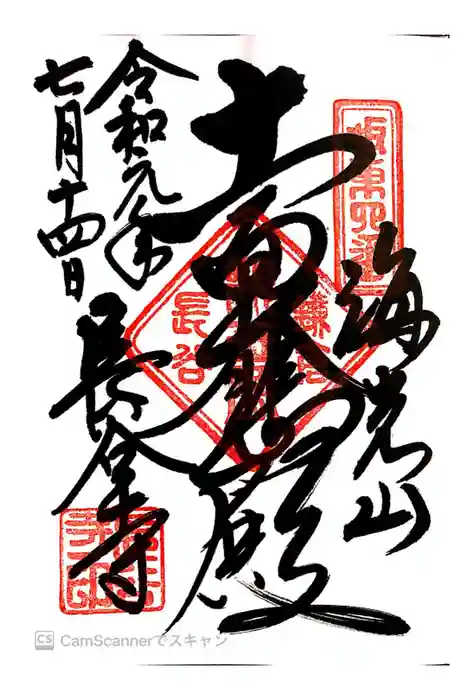 坂東四番
海光山
十一面 殿
鎌倉
長谷
令和元年
七月十四日
長谷寺
CS CamScannerでスキャン